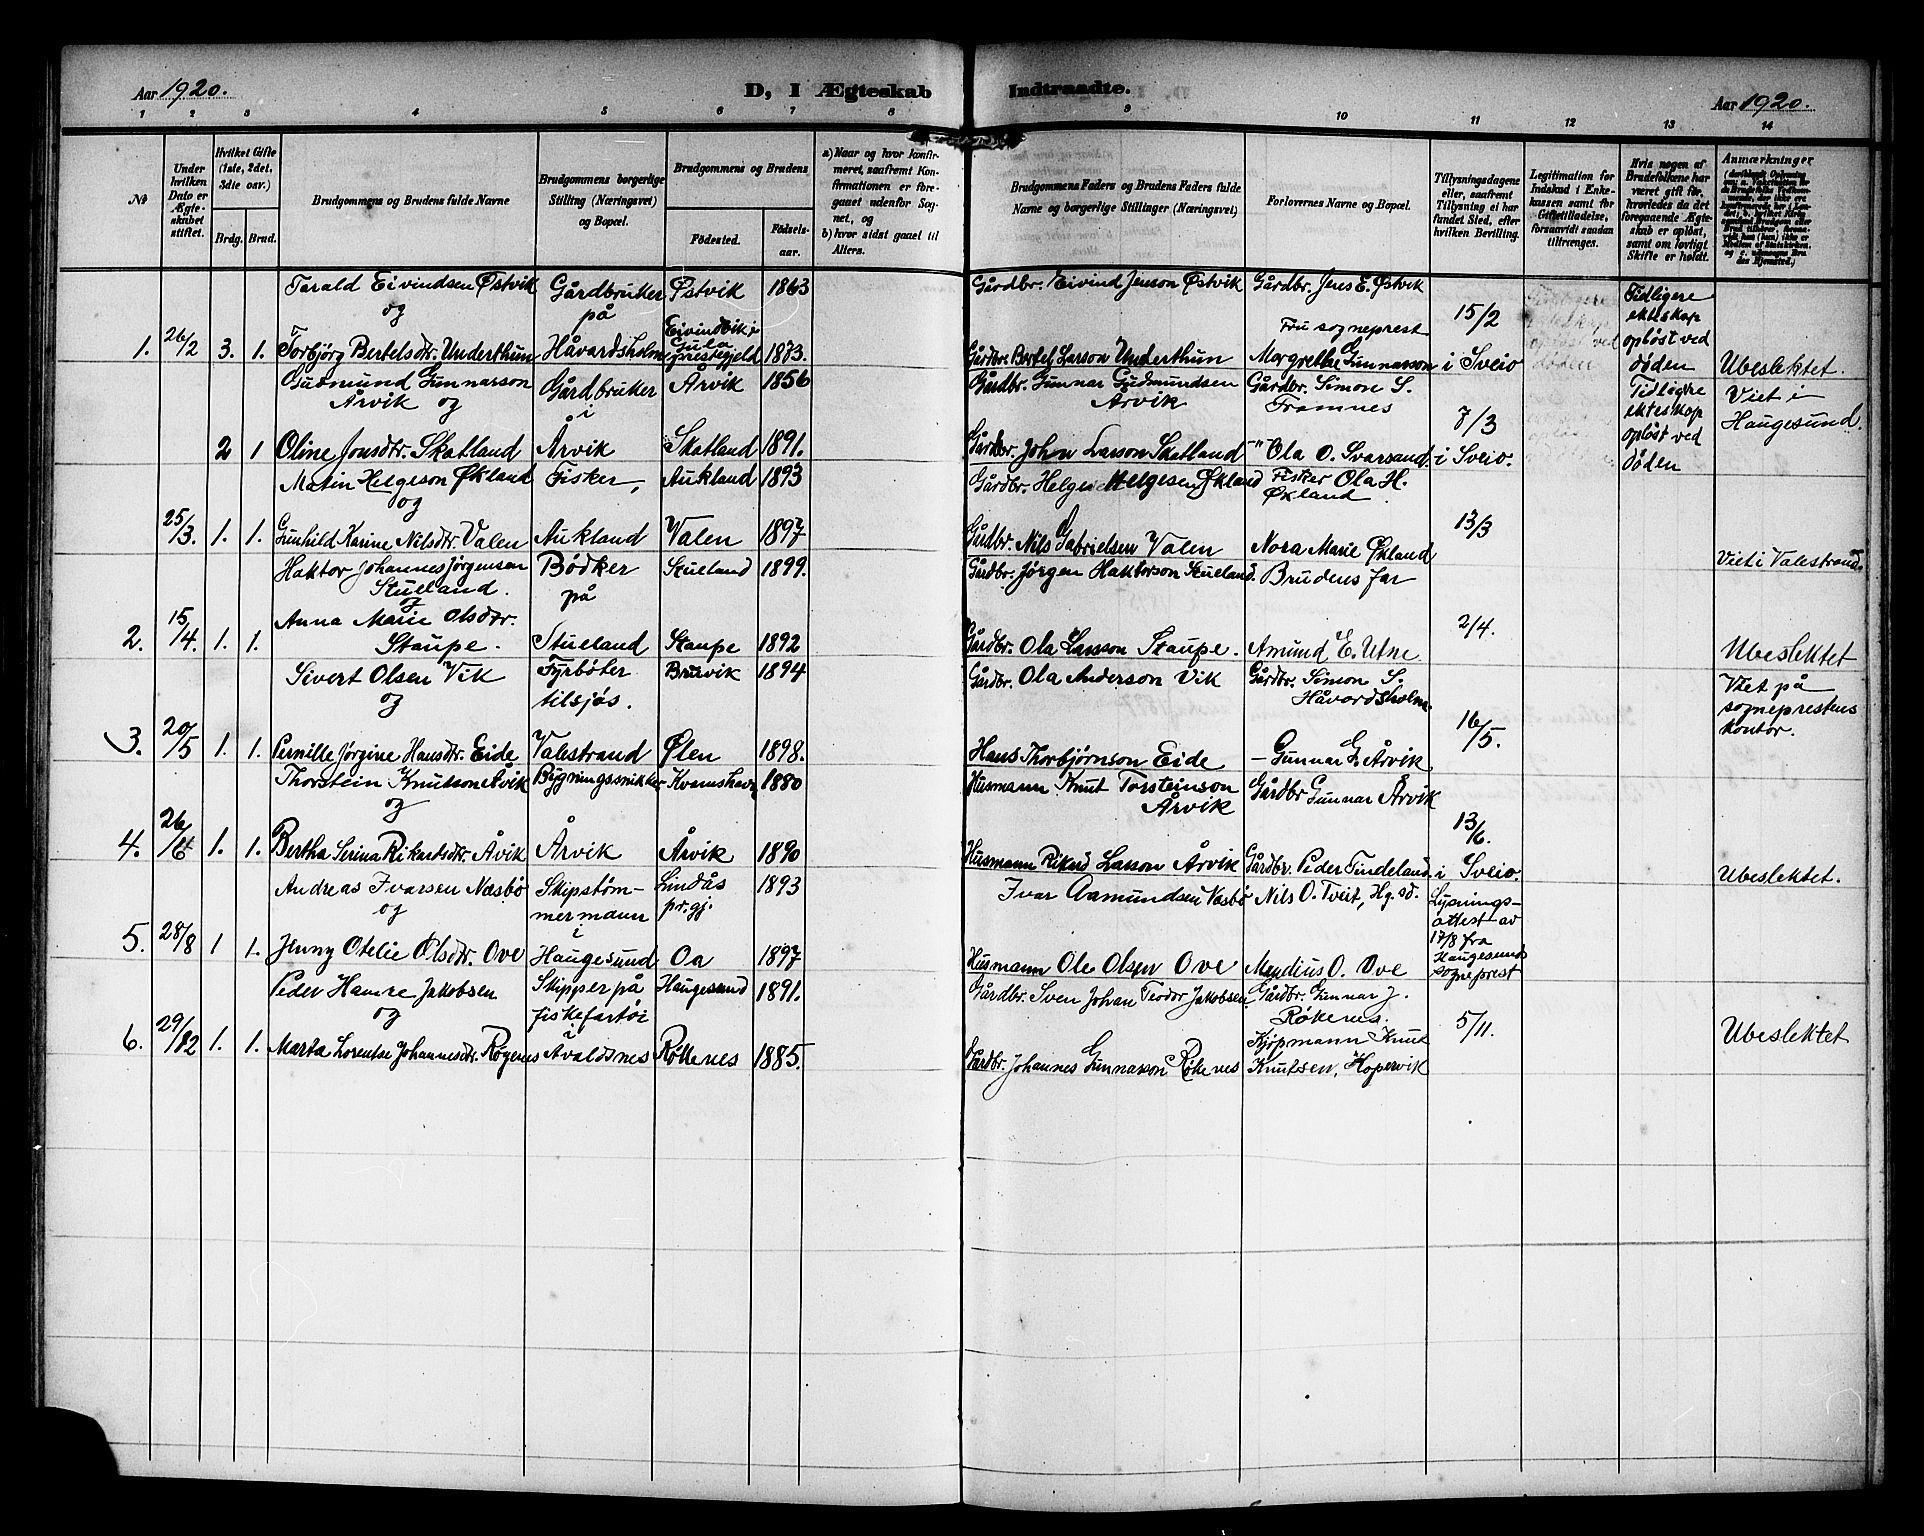 Aar 1920.
D, I Ægteskab Indtraadte.
Aar 1920.
1 2 3 4 5 6 7 8 9 10 11 12 13 14
No
Under hvilken Dato er Ægteskabet stiftet.
Hvilket Gifte (1ste, 2det, 3die osv.)
Brdg. Brud.
Brudgommens og Brudens fulde Navne
Brudgommens borgerlige Stilling (Næringsvei) og Bopæl.
Brudgommens og Brudens
Fødested.
Fødselsaar.
a) Naar og hvor konfirmeret, saafremt Konfirmationen er foregaaet udenfor Sognet, og
b) hvor sidst gaaet til Alters.
Brudgommens Faders og Brudens Faders fulde Navne og borgerlige Stillinger (Næringsvei)
Forlovernes Navne og Bopæl.
Tillysningsdagene eller, saafremt Tillysning ei har fundet Sted, efter hvilken Bevilling.
Legitimation for Indskud i Enkekassen samt for Giftetilladelse, forsaavidt saadan tiltrænges.
Hvis nogen af Brudefolkene har været gift før, hvorledes da det foregaaende Ægteskab er opløst, samt om lovligt Skifte er holdt.
Anmærkninger
Tarald Eivindsen Østvik Gårdbruker Østvik 1863 Gårdbr. Eivind Jenson Østvik Gårdbr. Jens E. Østvik
og på Eivindvik i 15/2 Tidligere ekteskap opløst ved døden
1. 26/2 3. 1. Torbjørg Bertelsdtr. Underthun Håvardsholm Gula prestegjeld 1873. Gårdbr. Bertel Larson Underthun Fru sogneprest Margrethe Gunnarson i Sveio Ubeslektet.
Gudmund Gunnarson Årvik og Gårdbruker i Årvik 1856 Gårdbr. Gunnar Gudmundsen Årvik Gårdbr. Simon S. Framnes 7/3 Tidligere ekteskap opløst ved døden Viet i Haugesund.
2 1 Oline Jonsdtr. Skatland Årvik Skatland 1891. Gårdbr. John Larson Skatland -"- Ola O. Svarsand i Sveio.
Matin Helgeson Økland Fisker, Aukland 1893 Gårdbr. Helge Helgesen Økland Fisker Ola H. Økland
og
25/3. 1. 1. Gunhild Karine Nilsdtr. Valen Aukland Valen 1897 Gårdbr. Nils Gabrielsen Valen Nora Marie Økland 13/3
Haktor Johannes Jørgensen Stueland. Bødker på Stueland 1899. Gårdbr. Jørgen Haktorson Stueland. Brudens far Viet i Valestrand.
2. 15/4. 1. 1. Anna Marie Olsdtr. Staupe. Stueland Staupe 1892 Gårdbr. Ola Larsson Staupe. Amund E. Utne 2/4. Ubeslektet
Sivert Olsen Vik Fyrbøter tilsjøs. Bruvik 1894 Gårdbr. Ola Anderson Vik Gårdbr. Simon S. Håvardsholm Viet på sogneprestens kontor.
og
3. 20/5 1. 1. Pernille Jørgine Hansdtr. Eide Valestrand Ølen 1898. Hans Thorbjørnson Eide – Gunnar G. Årvik 16/5.
Thorstein Knutson Årvik Bygningssnikker 1880 Husmann Knut Torsteinson Årvik Gårdbr Gunnar Årvik
og
4. 26/6 1. 1. Bertha Serina Rikardsdtr. Åvik Årvik Årvik 1890 Husmann Rikard Larson Årvik Gårdbr. Peder Tindeland 13/6. i Sveio. Ubeslektet.
Andreas Ivarsen Næsbø Skipstømmermann i Lindås pr.gj. 1893 Ivar Aamundsen Næsbø Nils O. Tveit, Hg.sd. Lysningsattest av 17/8 fra Haugesunds sogneprest
og
5. 28/8 1 1. Jenny Otelie Olsdtr. Ove Haugesund Oa 1897 Husmann Ole Olsen Ove Mandius O. Ove
Peder Hamre Jakobsen Skipper på fiskefartøi i Haugesund 1891. Gårdbr. Sven Johan Teodor Jakobsen Gårdbr. Gunnar J. Røkenes.
og
6. 29/12 1. 1. Marta Lorentse Johannesdtr. Røgenes Avaldsnes Røkenes 1885. Gårdbr. Johannes Gunnarson Røkenes Kjøpmann Knut Knutsen, Kopervik 5/11. Ubeslektet